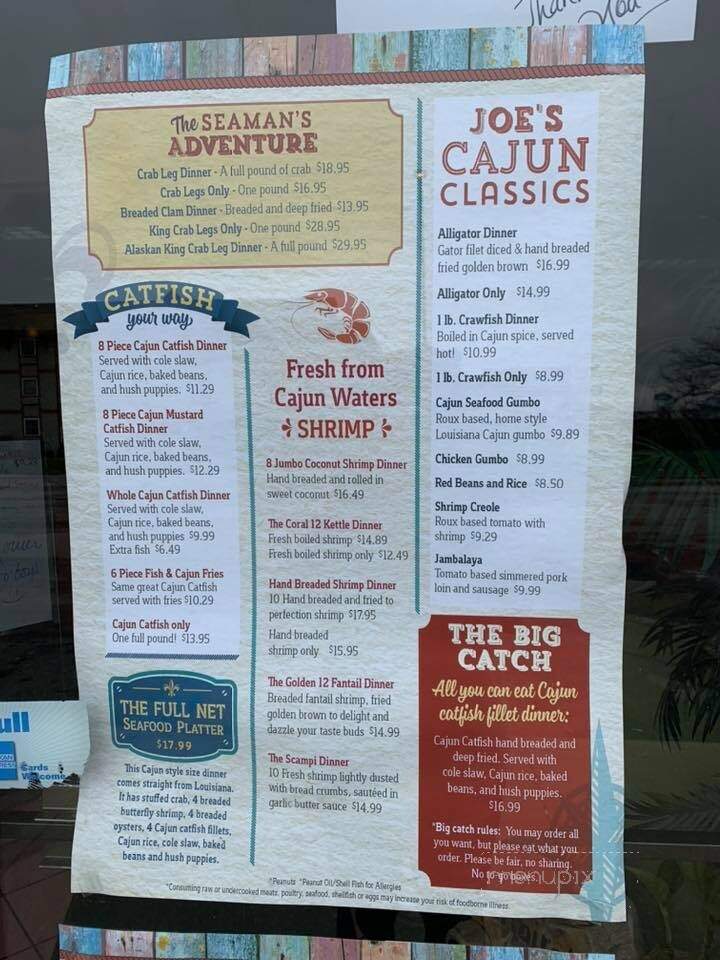 Thank
You
The SEAMAN'S
ADVENTURE
Crab Leg Dinner - A full pound of crab $18.95
Crab Legs Only - One pound $16.95
Breaded Clam Dinner - Breaded and deep fried $13.95
King Crab Legs Only - One pound $28.95
Alaskan King Crab Leg Dinner - A full pound $29.95
CATFISH
your way
8 Piece Cajun Catfish Dinner
Served with cole slaw,
Cajun rice, baked beans,
and hush puppies. $11.29
8 Piece Cajun Mustard
Catfish Dinner
Served with cole slaw,
Cajun rice, baked beans,
and hush puppies. $12.29
Whole Cajun Catfish Dinner
Served with cole slaw,
Cajun rice, baked beans,
and hush puppies $9.99
Extra fish $6.49
6 Piece Fish & Cajun Fries
Same great Cajun Catfish
served with fries $10.29
Cajun Catfish only
One full pound! $13.95
THE FULL NET
SEAFOOD PLATTER
$17.99
This Cajun style size dinner
comes straight from Louisiana.
It has stuffed crab, 4 breaded
butterfly shrimp, 4 breaded
oysters, 4 Cajun catfish fillets,
Cajun rice, cole slaw, baked
beans and hush puppies.
Fresh from
Cajun Waters
SHRIMP
8 Jumbo Coconut Shrimp Dinner
Hand breaded and rolled in
sweet coconut $16.49
The Coral 12 Kettle Dinner
Fresh boiled shrimp $14.89
Fresh boiled shrimp only $12.49
Hand Breaded Shrimp Dinner
10 Hand breaded and fried to
perfection shrimp $17.95
Hand breaded
shrimp only $15.95
The Golden 12 Fantail Dinner
Breaded fantail shrimp, fried
golden brown to delight and
dazzle your taste buds $14.99
The Scampi Dinner
10 Fresh shrimp lightly dusted
with bread crumbs, sautéed in
garlic butter sauce $14.99
JOE'S
CAJUN
CLASSICS
Alligator Dinner
Gator filet diced & hand breaded
fried golden brown $16.99
Alligator Only $14.99
1 lb. Crawfish Dinner
Boiled in Cajun spice, served
hot! $10.99
1 lb. Crawfish Only $8.99
Cajun Seafood Gumbo
Roux based, home style
Louisiana Cajun gumbo $9.89
Chicken Gumbo $8.99
Red Beans and Rice $8.50
Shrimp Creole
Roux based tomato with
shrimp $9.29
Jambalaya
Tomato based simmered pork
loin and sausage $9.99
THE BIG
CATCH
All you can eat Cajun
catfish fillet dinner:
Cajun Catfish hand breaded and
deep fried. Served with
cole slaw, Cajun rice, baked
beans, and hush puppies.
$16.99
*Big catch rules: You may order all
you want, but please eat what you
order. Please be fair, no sharing.
No to-go boxes.
menupix
*Peanuts *Peanut Oil/Shell Fish for Allergies
*Consuming raw or undercooked meats, poultry, seafood, shellfish or eggs may increase your risk of foodborne illness.
ull
Cards
Welcome